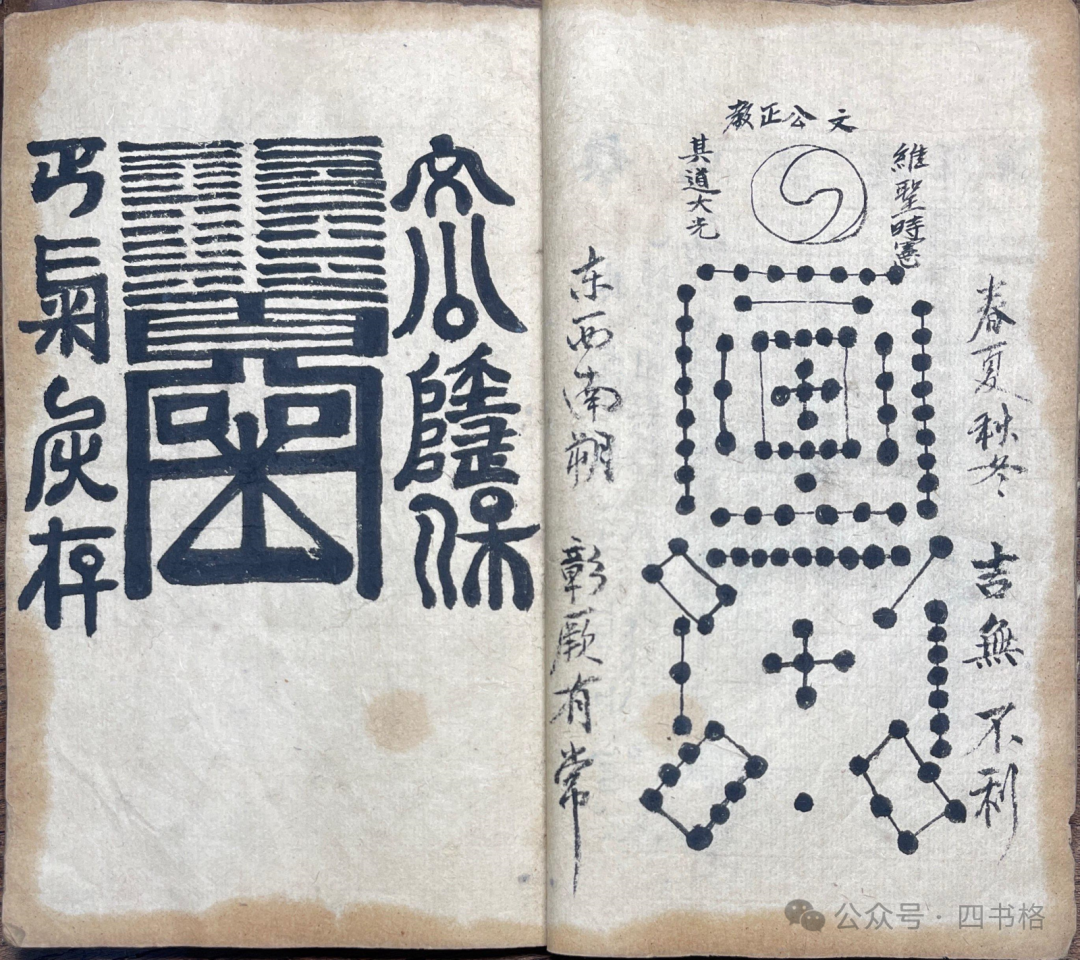 文公正教
維聖時憲
其道大光
春夏秋冬 吉無不利
东西南朔 彰厥有常
文公隆保
丹氣炭存
公众号 · 四书格